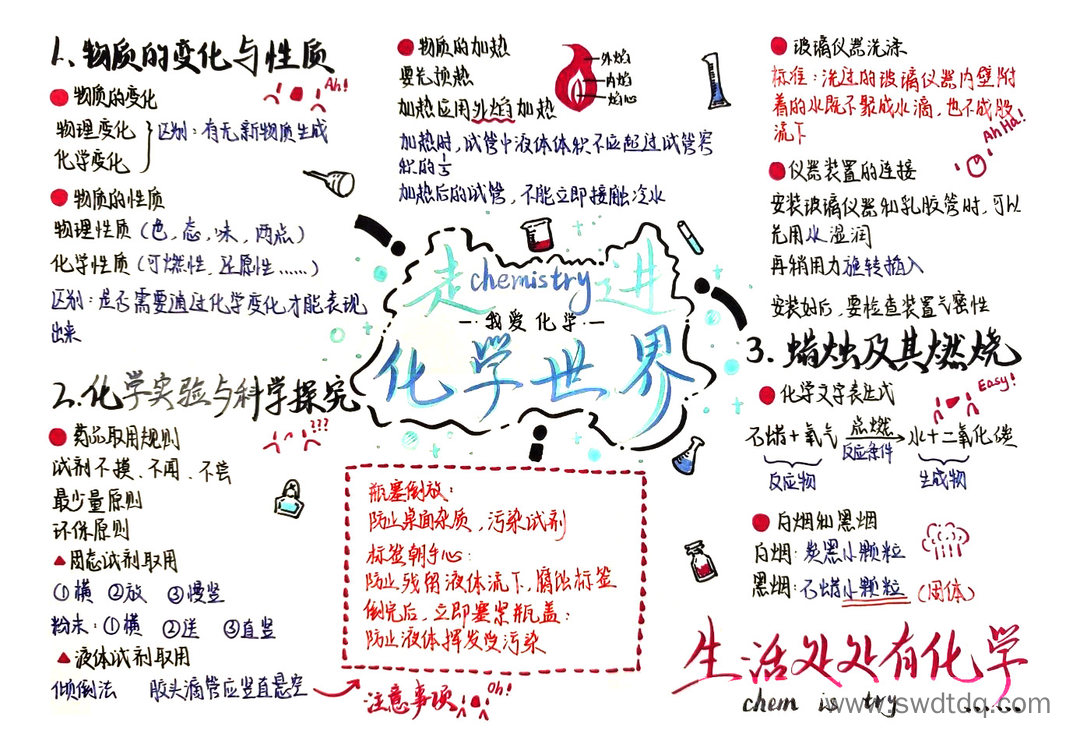 1、物质的变化与性质
Ah!
物质的变化
物理变化
化学变化
区别：有无新物质生成
物质的性质
物理性质（色，态，味，两点）
化学性质（可燃性，还原性……）
区别：是否需要通过化学变化才能表现
出来
2、化学实验与科学探究
???
药品取用规则
试剂不摸、不闻、不尝
最少量原则
环保原则
▲固态试剂取用
①横 ②放 ③慢竖
粉末：①横 ②送 ③直竖
▲液体试剂取用
倾倒法 胶头滴管应竖直悬空
物质的加热
要先预热
加热应用外焰加热
外焰
内焰
焰心
加热时，试管中液体体积不应超过试管容
积的1/3
加热后的试管，不能立即接触冷水
走chemistry进
我爱化学
化学世界
瓶塞倒放：
防止桌面杂质，污染试剂
标签朝手心：
防止残留液体流下，腐蚀标签
倒完后，立即塞紧瓶盖：
防止液体挥发受污染
注意事项
Oh!
玻璃仪器洗涤
标准：洗过的玻璃仪器内壁附
着的水既不聚成水滴，也不成股
流下
Ah Ha!
仪器装置的连接
安装玻璃仪器和乳胶管时，可以
先用水湿润
再稍用力旋转插入
安装好后，要检查装置气密性
3、蜡烛及其燃烧
Easy!
化学文字表达式
石蜡+氧气 点燃→ 水+二氧化碳
反应条件
反应物
生成物
白烟和黑烟
白烟：炭黑小颗粒
黑烟：石蜡小颗粒（固体）
生活处处有化学
chem is try ......
www.swdtdq.com